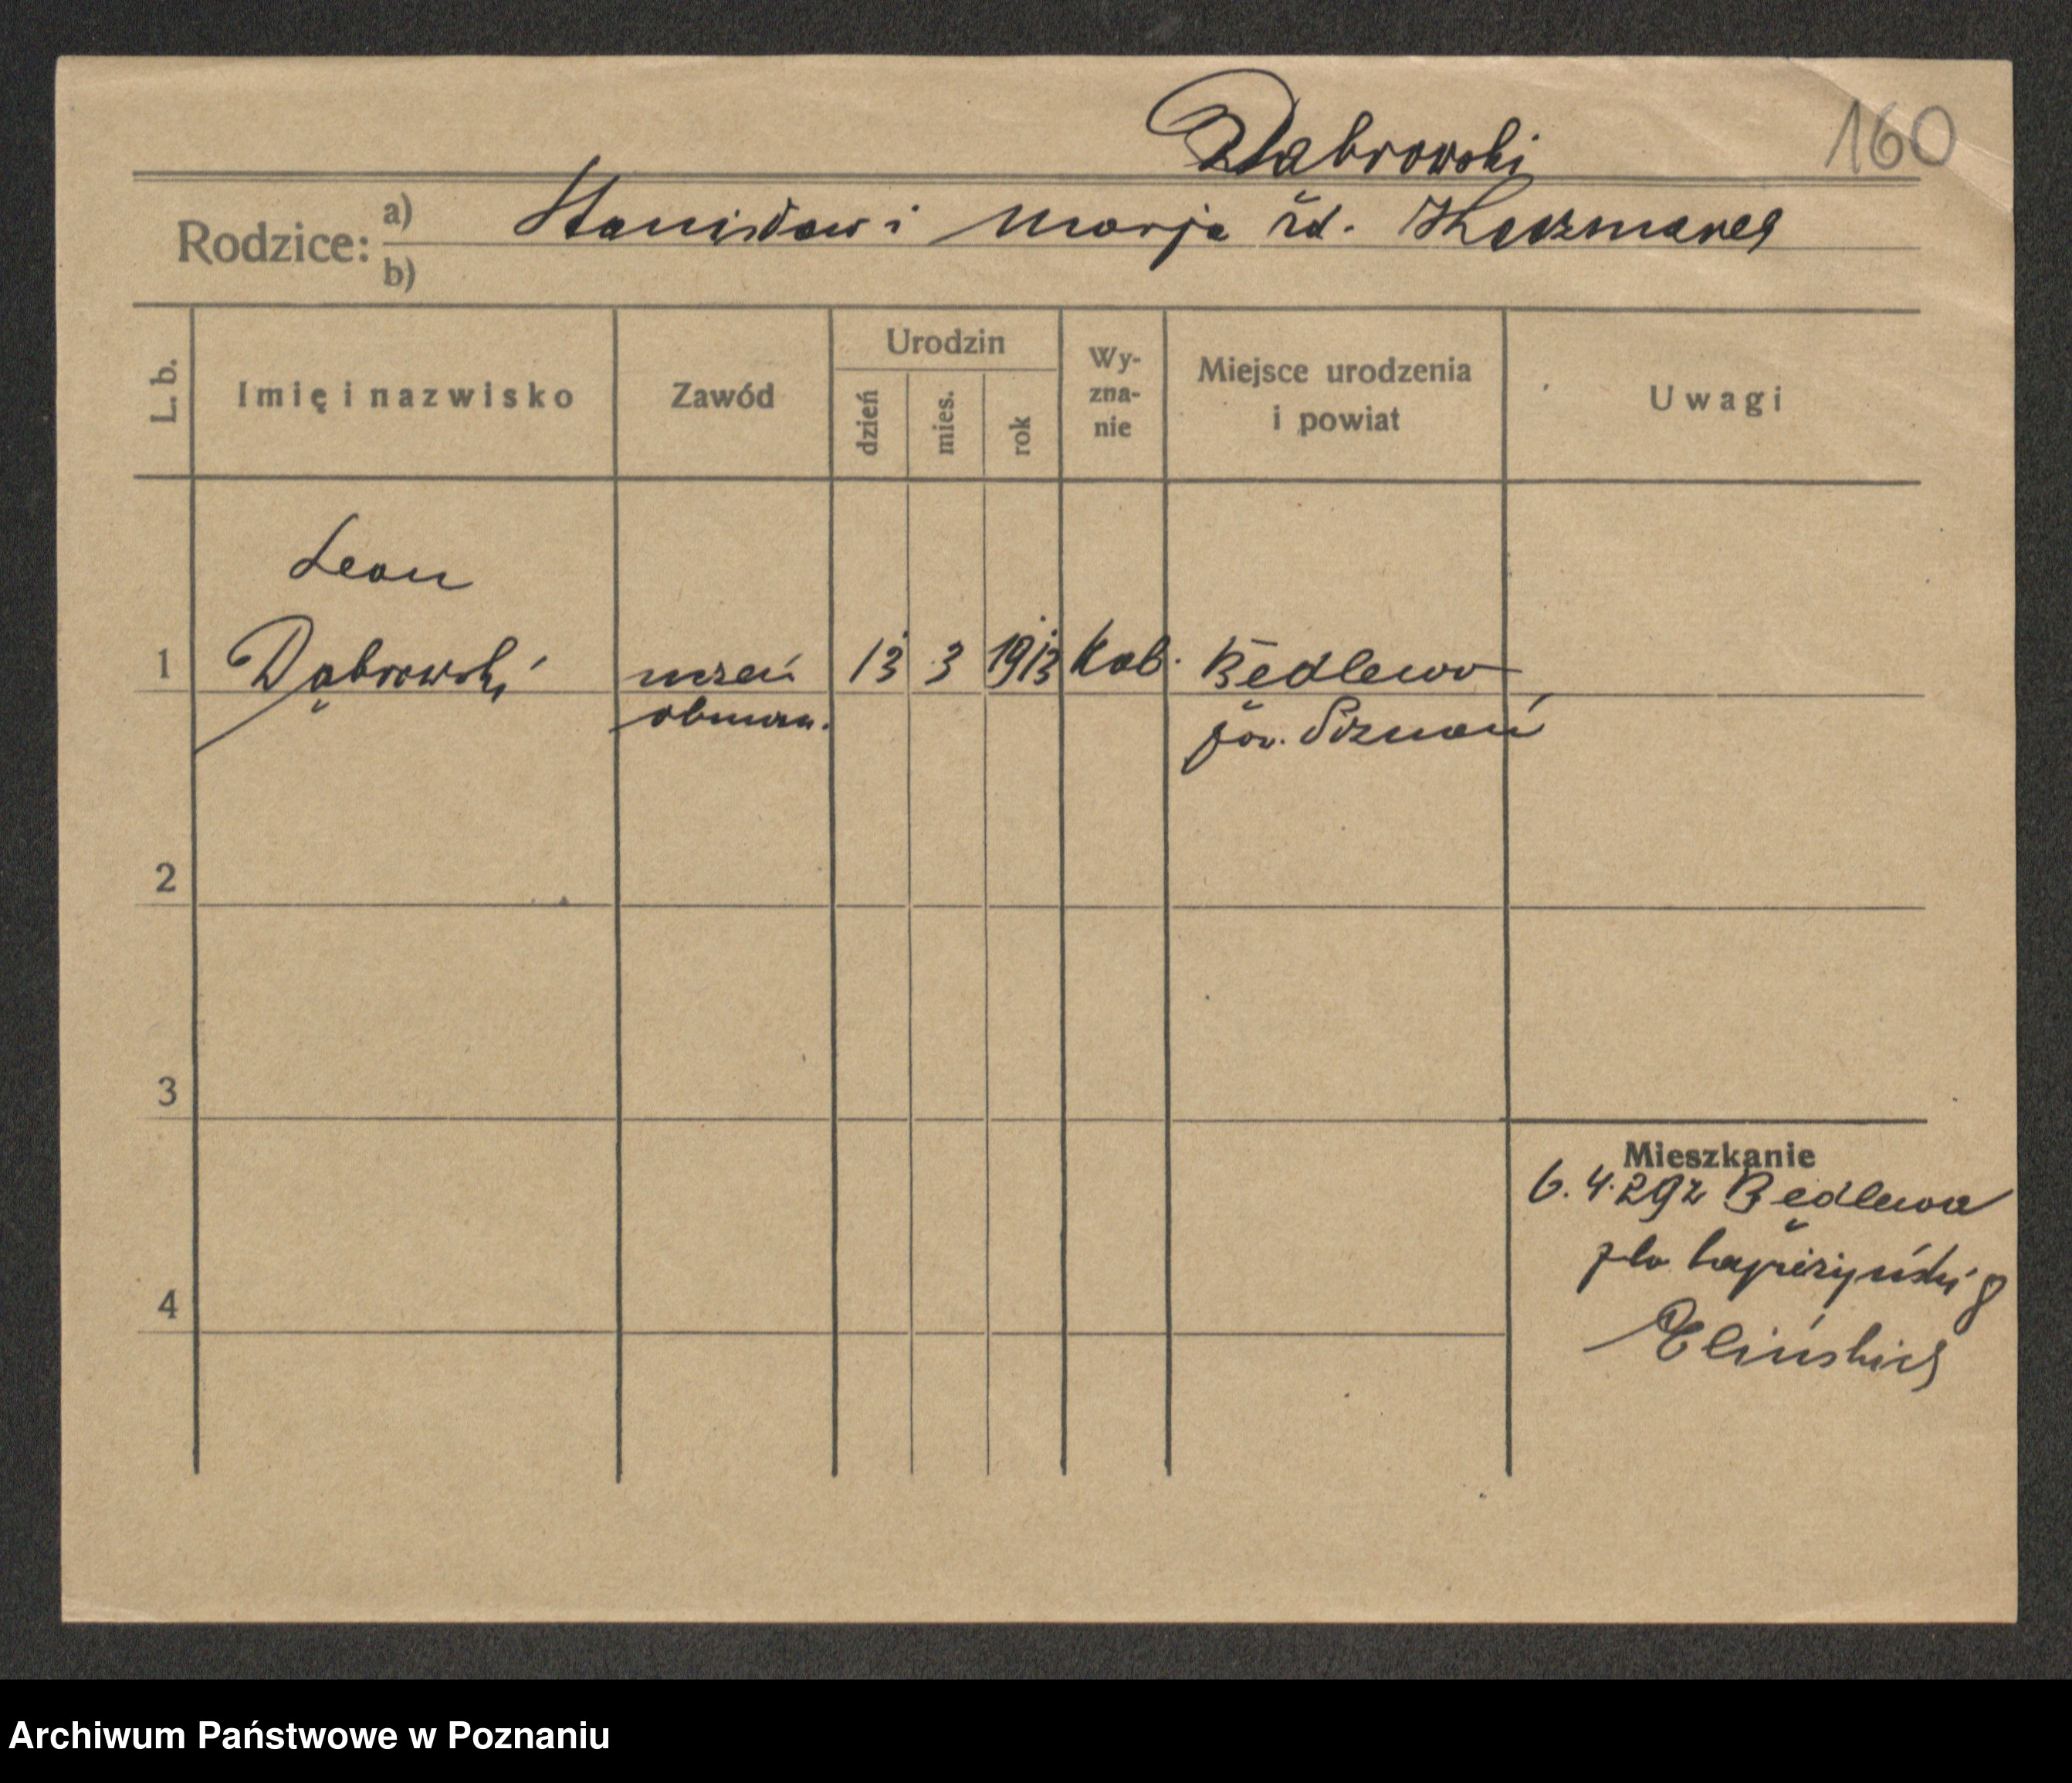 Dąbrowski
160
Rodzice: a) Stanisław i Marja źd. Kaczmarek
b)
L. b. Imię i nazwisko Zawód Urodzin dzień mies. rok Wy-zna-nie Miejsce urodzenia i powiat Uwagi
Leon
1 Dąbrowski uczeń 13 3 1913 kat. Będlewo
pow. Poznań
2
3
Mieszkanie
6. 4. 29 z Będlewa
4
Elińskich
Archiwum Państwowe w Poznaniu